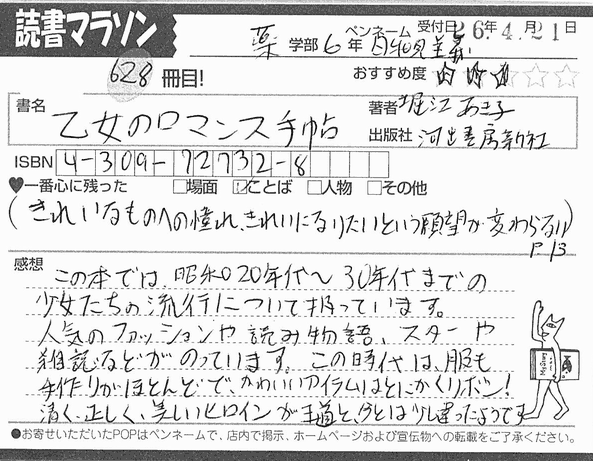 読書マラソン
薬 学部 6年 ペンネーム 自然現主義 受付日 26年 4月 21日
628 冊目! おすすめ度 ★★★☆☆
書名 乙女のロマンス手帖
著者 堀江あき子
出版社 河出書房新社
ISBN 4-309-72732-8
♥一番心に残った □場面 ☑ことば □人物 □その他
(きれいなものへの憧れ、きれいになりたいという願望が変わらない)
P13
感想
この本では、昭和20年代〜30年代までの
少女たちの流行について扱っています。
人気のファッションや読み物語、スターや
雑誌などがのっています。この時代は、服も
手作りがほとんどで、かわいいアイテムはとにかくリボン!
清く、正しく、美しいヒロインが王道と、今とは少し違ったようです
●お寄せいただいたPOPはペンネームで、店内で掲示、ホームページおよび宣伝物への転載をご了承ください。